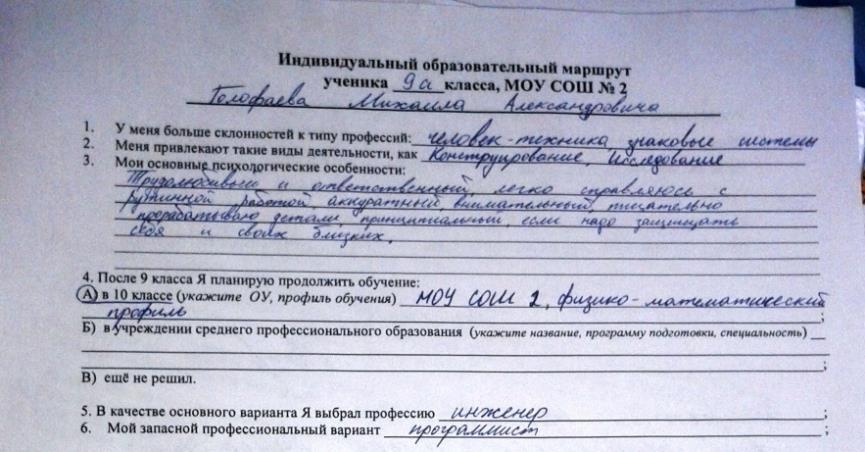 Индивидуальный образовательный маршрут
ученика 9а класса, МОУ СОШ № 2
Голофаева Михаила Александровича
1. У меня больше склонностей к типу профессий: человек-техника, знаковые системы
2. Меня привлекают такие виды деятельности, как Конструирование, Исследование
3. Мои основные психологические особенности:
Трудолюбивый и ответственный, легко справляюсь с
рутинной работой, аккуратный, внимательный, тщательно
прорабатываю детали, принципиальный, если надо защищать
себя и своих близких.
4. После 9 класса Я планирую продолжить обучение:
А) в 10 классе (укажите ОУ, профиль обучения) МОУ СОШ 2, физико-математический
профиль ;
Б) в учреждении среднего профессионального образования (укажите название, программу подготовки, специальность)
;
В) ещё не решил.
5. В качестве основного варианта Я выбрал профессию инженер ;
6. Мой запасной профессиональный вариант программист ;